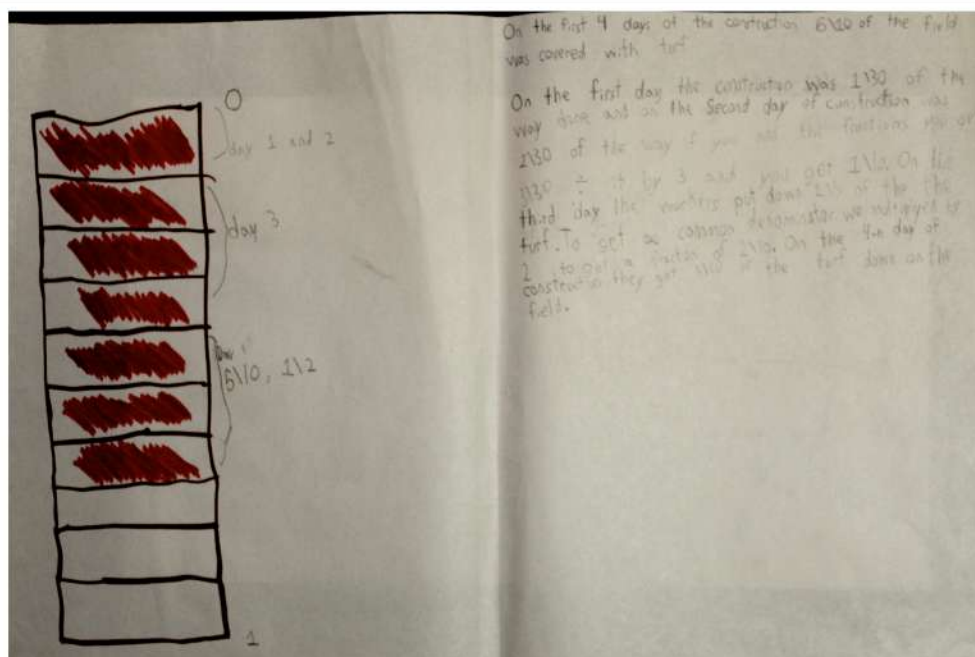 0
day 1 and 2
day 3
Day
5\10, 1\2
1
On the first 4 days of the contruction 6\10 of the field
was covered with turf
On the first day the contruction was 1\30 of the
way done and on the Second day of construction was
2\30 of the way if you add the fractions you get
3\30 ÷ it by 3 and you get 1\10. On the
third day the workers put down of the the
turf. To get a common denominator we multiplyed by
2 to get a fraction of 2\10. On the 4th day of
construction they got of the turf done on the
field.